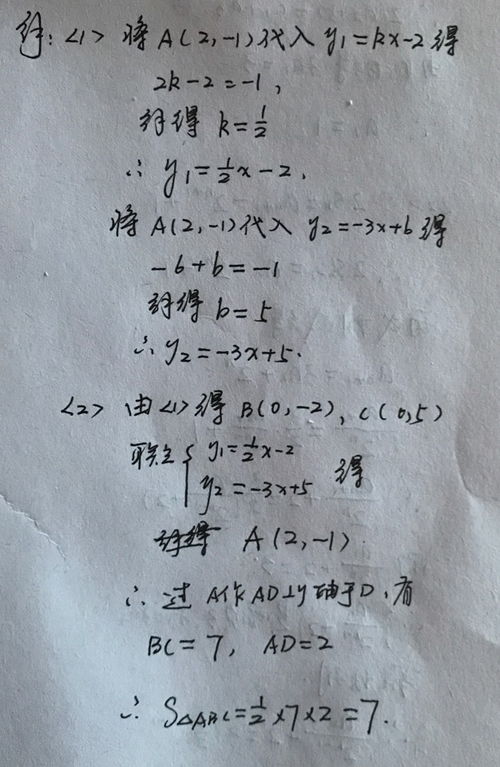 解:<1> 将 A(2,-1)代入 y₁=kx-2得
2k-2=-1,
解得 k=1/2
∴ y₁=1/2x-2,
将 A(2,-1)代入 y₂=-3x+b得
-6+b=-1
解得 b=5
∴ y₂=-3x+5.
<2> 由<1>得 B(0,-2), C(0,5)
联立{ y₁=1/2x-2
y₂=-3x+5 得
A(2,-1)
∴ 过 A作AD⊥y轴于D,有
BC=7, AD=2
∴ S△ABC=1/2×7×2=7.